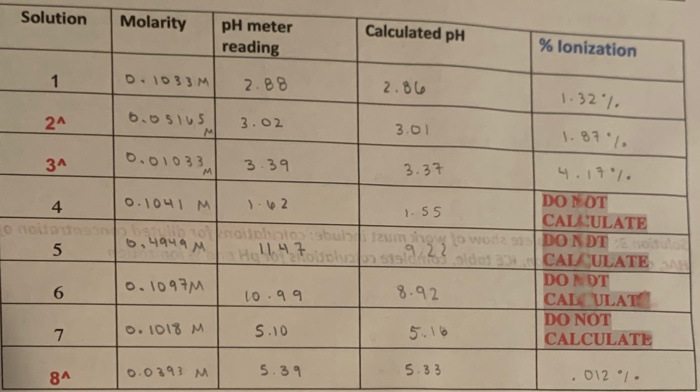 Solution Molarity pH meter reading Calculated pH % Ionization
1 0.1033 M 2.88 2.86 1.32 %.
2^ 0.05165 M 3.02 3.01 1.87 %.
3^ 0.01033 M 3.39 3.37 4.17 %.
4 0.1041 M 1.62 1.55 DO NOT CALCULATE
5 0.4949 M 11.47 9.22 DO NOT CALCULATE
6 0.1097M 10.99 8.92 DO NOT CALCULATE
7 0.1018 M 5.10 5.16 DO NOT CALCULATE
8^ 0.0393 M 5.39 5.33 .012 %.